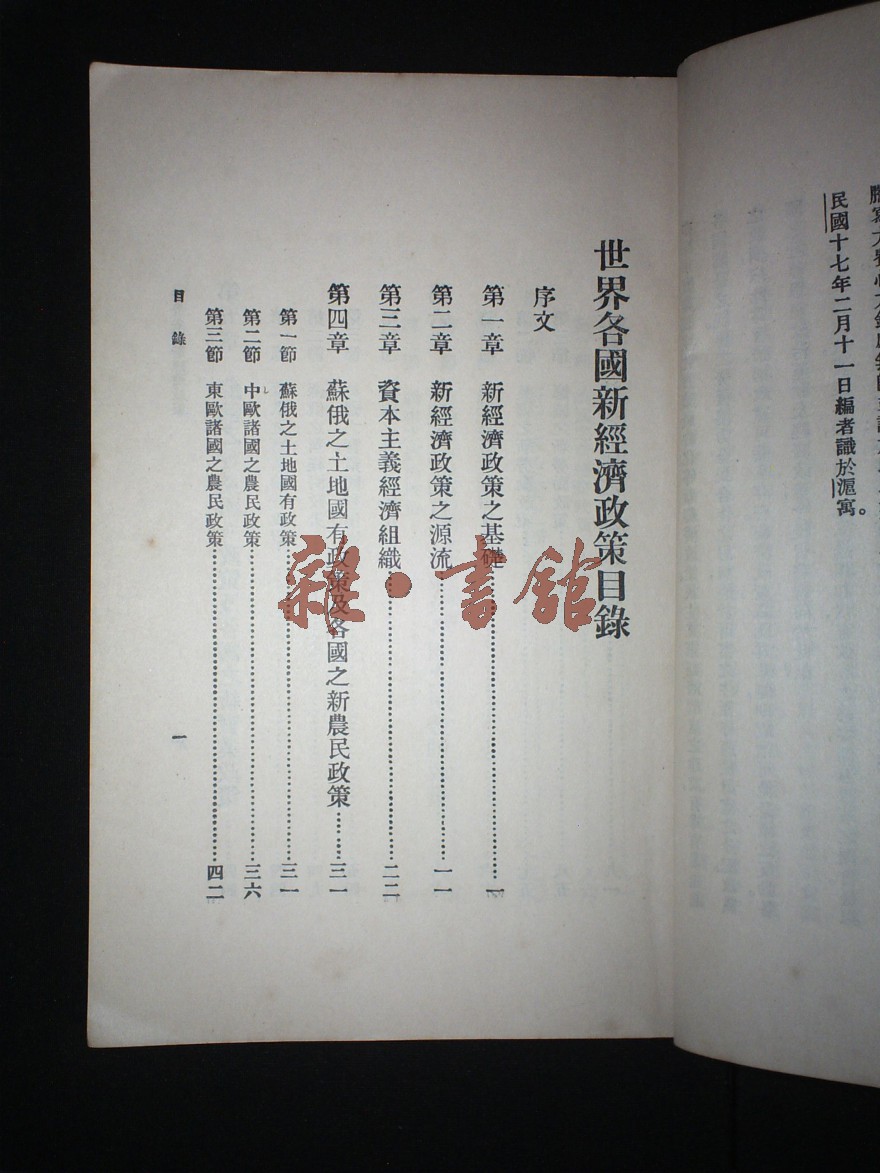 民國十七年二月十一日編者識於滬寓。
世界各國新經濟政策目錄
序文
第一章 新經濟政策之基礎……一
第二章 新經濟政策之源流……一一
第三章 資本主義經濟組織……二二
第四章 蘇俄之土地國有政策及各國之新農民政策……三一
第一節 蘇俄之土地國有政策……三一
第二節 中歐諸國之農民政策……三六
第三節 東歐諸國之農民政策……四二
目錄 一
雜·書館